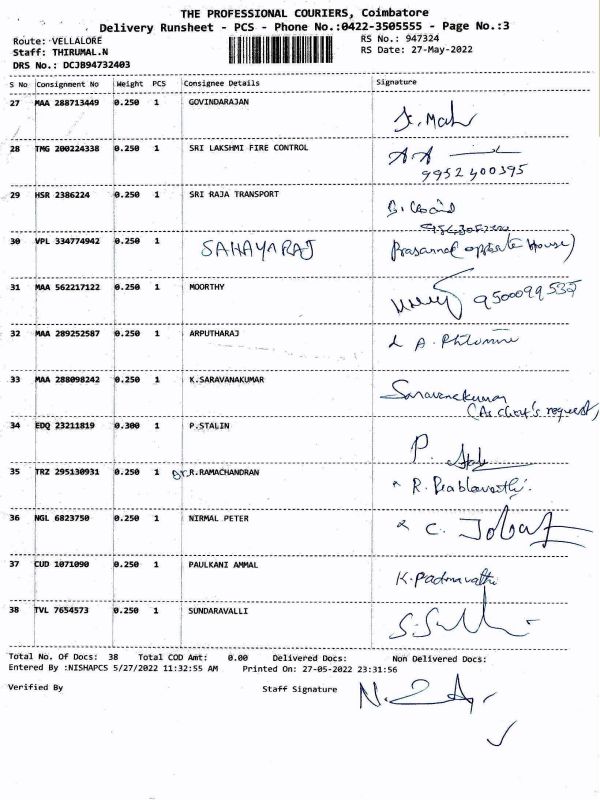 THE PROFESSIONAL COURIERS, Coimbatore
Delivery Runsheet - PCS - Phone No.:0422-3505555 - Page No.:3
Route: VELLALORE
RS No.: 947324
Staff: THIRUMAL.N
RS Date: 27-May-2022
DRS No.: DCJB94732403
S No Consignment No Weight PCS Consignee Details Signature
27 MAA 288713449 0.250 1 GOVINDARAJAN
28 TMG 200224338 0.250 1 SRI LAKSHMI FIRE CONTROL
9952400395
29 HSR 2386224 0.250 1 SRI RAJA TRANSPORT
30 VPL 334774942 0.250 1 SAHAYARAJ
31 MAA 562217122 0.250 1 MOORTHY 9500099535
32 MAA 289252587 0.250 1 ARPUTHARAJ
33 MAA 288098242 0.250 1 K.SARAVANAKUMAR Saravanakumar
34 EDQ 23211819 0.300 1 P.STALIN P.
35 TRZ 295130931 0.250 1 Dr.R.RAMACHANDRAN
36 NGL 6823750 0.250 1 NIRMAL PETER
37 CUD 1071090 0.250 1 PAULKANI AMMAL K.Padmavathi
38 TVL 7654573 0.250 1 SUNDARAVALLI
Total No. Of Docs: 38 Total COD Amt: 0.00 Delivered Docs: Non Delivered Docs:
Entered By :NISHAPCS 5/27/2022 11:32:55 AM Printed On: 27-05-2022 23:31:56
Verified By Staff Signature